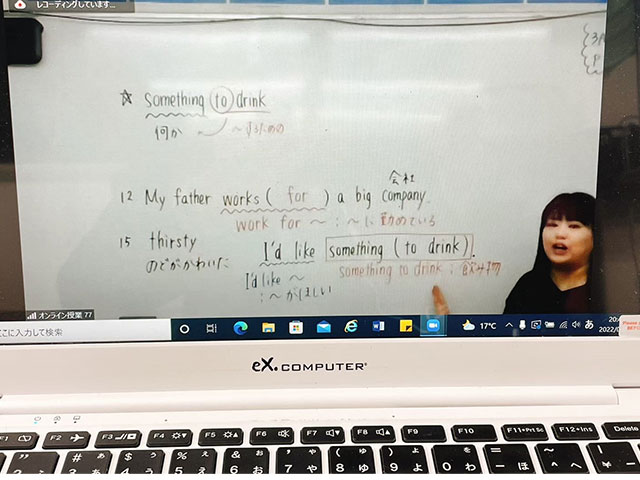 レコーディングしています...
☆ something to drink
何か 〜するための
会社
12 My father works ( for ) a big company.
work for 〜 : 〜に勤めている
15 thirsty
のどがかわいた
I'd like something (to drink).
something to drink : 飲み物
I'd like 〜
: 〜がほしい
オンライン授業 77
ここに入力して検索
17℃
あ
eX.COMPUTER
F2
F3
F4
F5
F6
F7
F8
F9
F10
F11+Prt Sc
F12+Ins
Delete